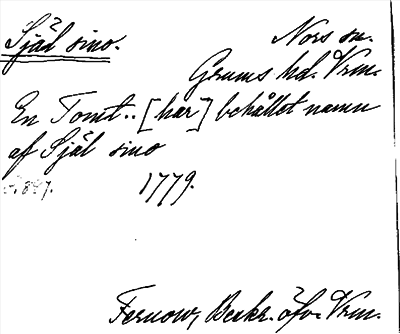 Själ sino. Nors sn.
Grums hd. Vrm.
En Tomt.. [har] behållet namn
af Själ sino
1779.
Fernow, Beskr. öfv. Vrm.